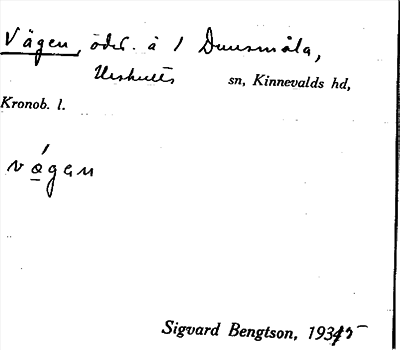 Vägen, öde. å 1 Dunsmåla,
Urshults sn, Kinnevalds hd,
Kronob. l.
vǻgen
Sigvard Bengtson, 1935